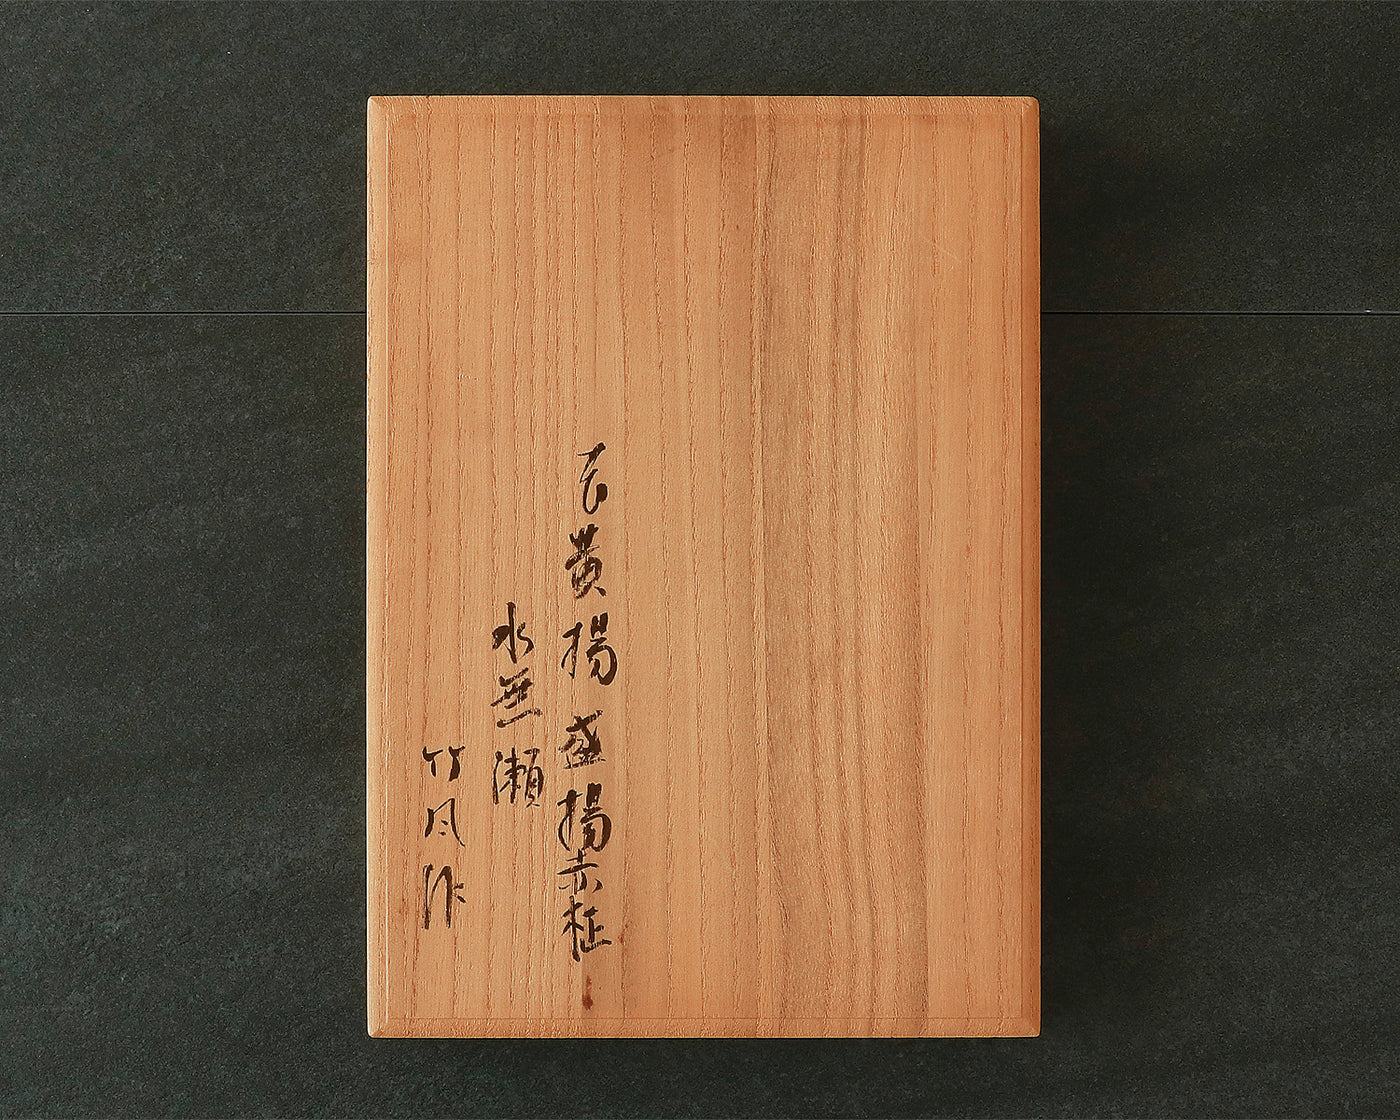 黄揚 盛揚赤柾
水無瀬
竹風作